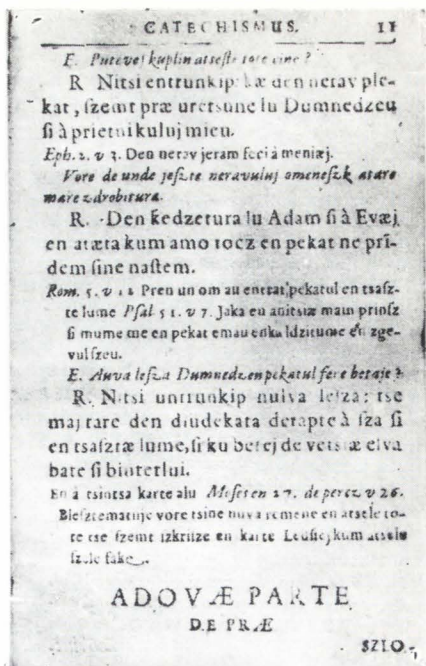 CATECHISMUS. 11
E. Putevej kuplin atseste tore tine ?
R Nitsi entrunkip: kæ den nerav ple-
kat, szemt præ uretsune lu Dumnedzeu
si à prietnikuluj mieu.
Eph. 2. v 3. Den nerav jeram feci à meniæj.
Vore de unde jeszte neravuluj omeneszk atare
mare zdrobitura.
R. Den kedzetura lu Adam si à Evæj
en atæta kum amo tocz en pekat ne prī-
dem sine nastem.
Rom. 5. v 12 Pren un om au entrat pekatul en tsasz-
te lume Psal 51. v 7. Jaka en anitsiæ main prinsz
si mume me en pekat emau enkaldzitume en zge-
vulszeu.
E. Auva lesza Dumnedzen pekatul fere betaje ?
R. Nitsi untrunkip nuiva lesza; tse
maj tare den diudekata derapte à sza si
en tsasztæ lume, si ku betej de vetsiæ elva
bate si bintetlui.
En à tsintsa karte alu Moses en 27. de percz. v 26.
Blesztematuje vore tsine nuva remene en atsele to-
te tse szemt izkriize en karte Leusiej kum atsele
szele fake.
ADOVÆ PARTE
DE PRÆ
SZLO-